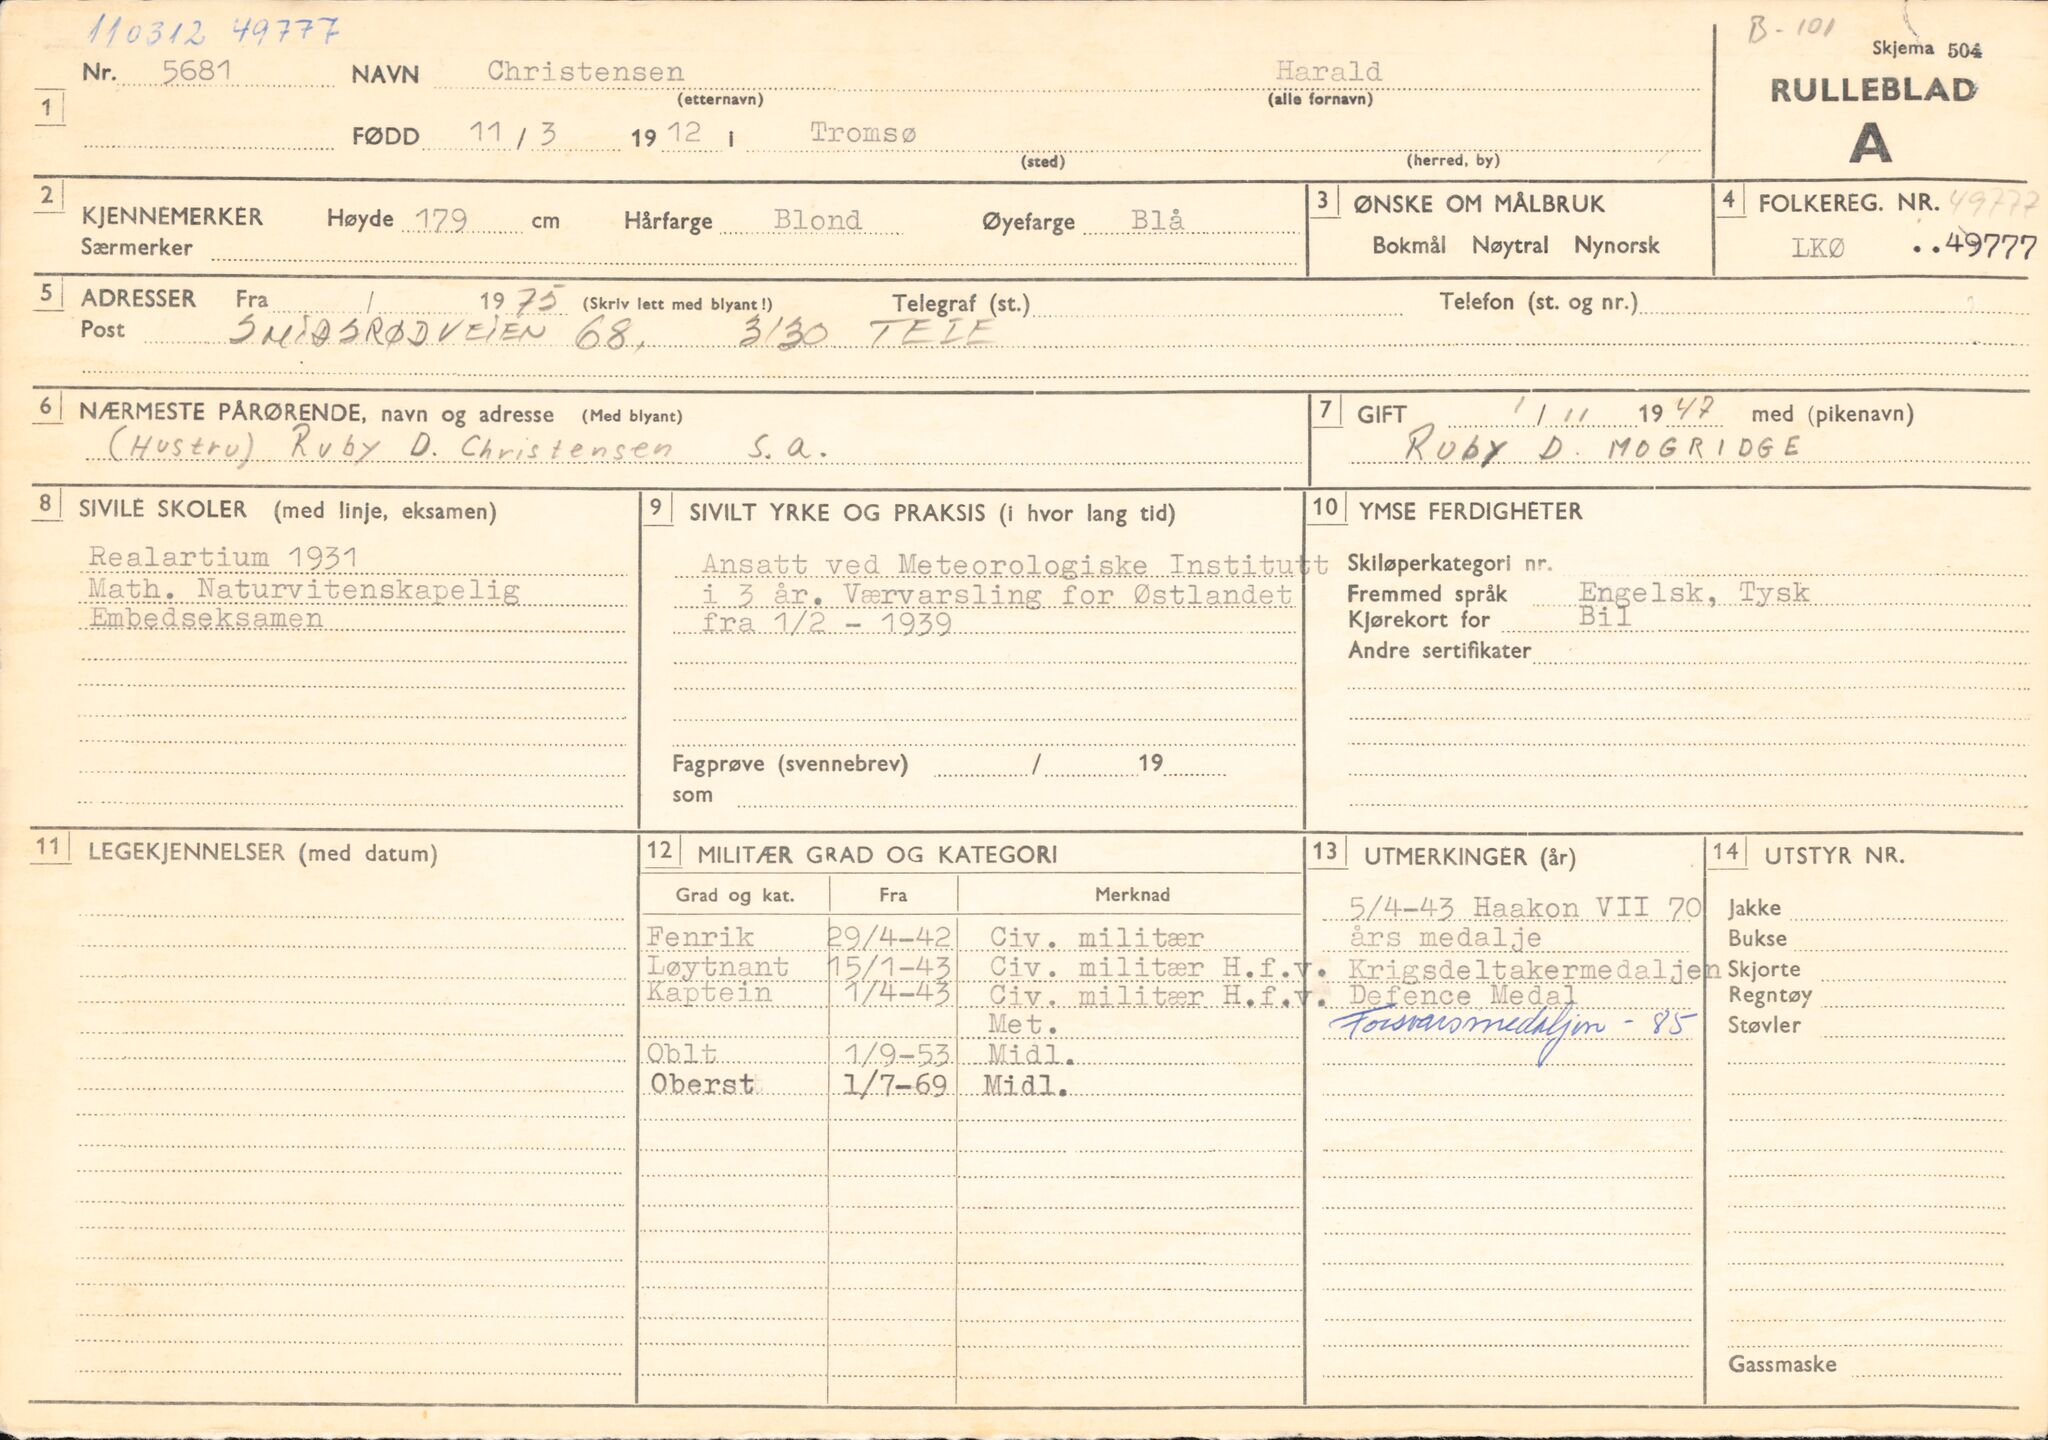 110312 49777
B-101
Skjema 504
Nr. 5681 NAVN Christensen Harald
(etternavn) (alle fornavn)
RULLEBLAD
A
1
FØDD 11/3 1912 i Tromsø
(sted) (herred, by)
2 KJENNEMERKER Høyde 179 cm Hårfarge Blond Øyefarge Blå
Særmerker
3 ØNSKE OM MÅLBRUK
Bokmål Nøytral Nynorsk
4 FOLKEREG. NR. 49777
LKØ ..49777
5 ADRESSER Fra / 1975 (Skriv lett med blyant!) Telegraf (st.) Telefon (st. og nr.)
Post SMIDSRØDVEIEN 68, 3130 TEIE
6 NÆRMESTE PÅRØRENDE, navn og adresse (Med blyant)
(Hustru) Ruby D. Christensen s.a.
7 GIFT 1/11 1947 med (pikenavn)
Ruby D. MOGRIDGE
8 SIVILE SKOLER (med linje, eksamen)
Realartium 1931
Math. Naturvitenskapelig
Embedseksamen
9 SIVILT YRKE OG PRAKSIS (i hvor lang tid)
Ansatt ved Meteorologiske Institutt
i 3 år. Værvarsling for Østlandet
fra 1/2 - 1939
Fagprøve (svennebrev) / 19
som
10 YMSE FERDIGHETER
Skiløperkategori nr.
Fremmed språk Engelsk, Tysk
Kjørekort for Bil
Andre sertifikater
11 LEGEKJENNELSER (med datum)
12 MILITÆR GRAD OG KATEGORI
Grad og kat. Fra Merknad
Fenrik 29/4-42 Civ. militær
Løytnant 15/1-43 Civ. militær H.f.v.
Kaptein 1/4-43 Civ. militær H.f.v.
Met.
Oblt 1/9-53 Midl.
Oberst 1/7-69 Midl.
13 UTMERKINGER (år)
5/4-43 Haakon VII 70
års medalje
Krigsdeltakermedaljen
Defence Medal
Forsvarsmedaljen - 85
14 UTSTYR NR.
Jakke
Bukse
Skjorte
Regntøy
Støvler
Gassmaske